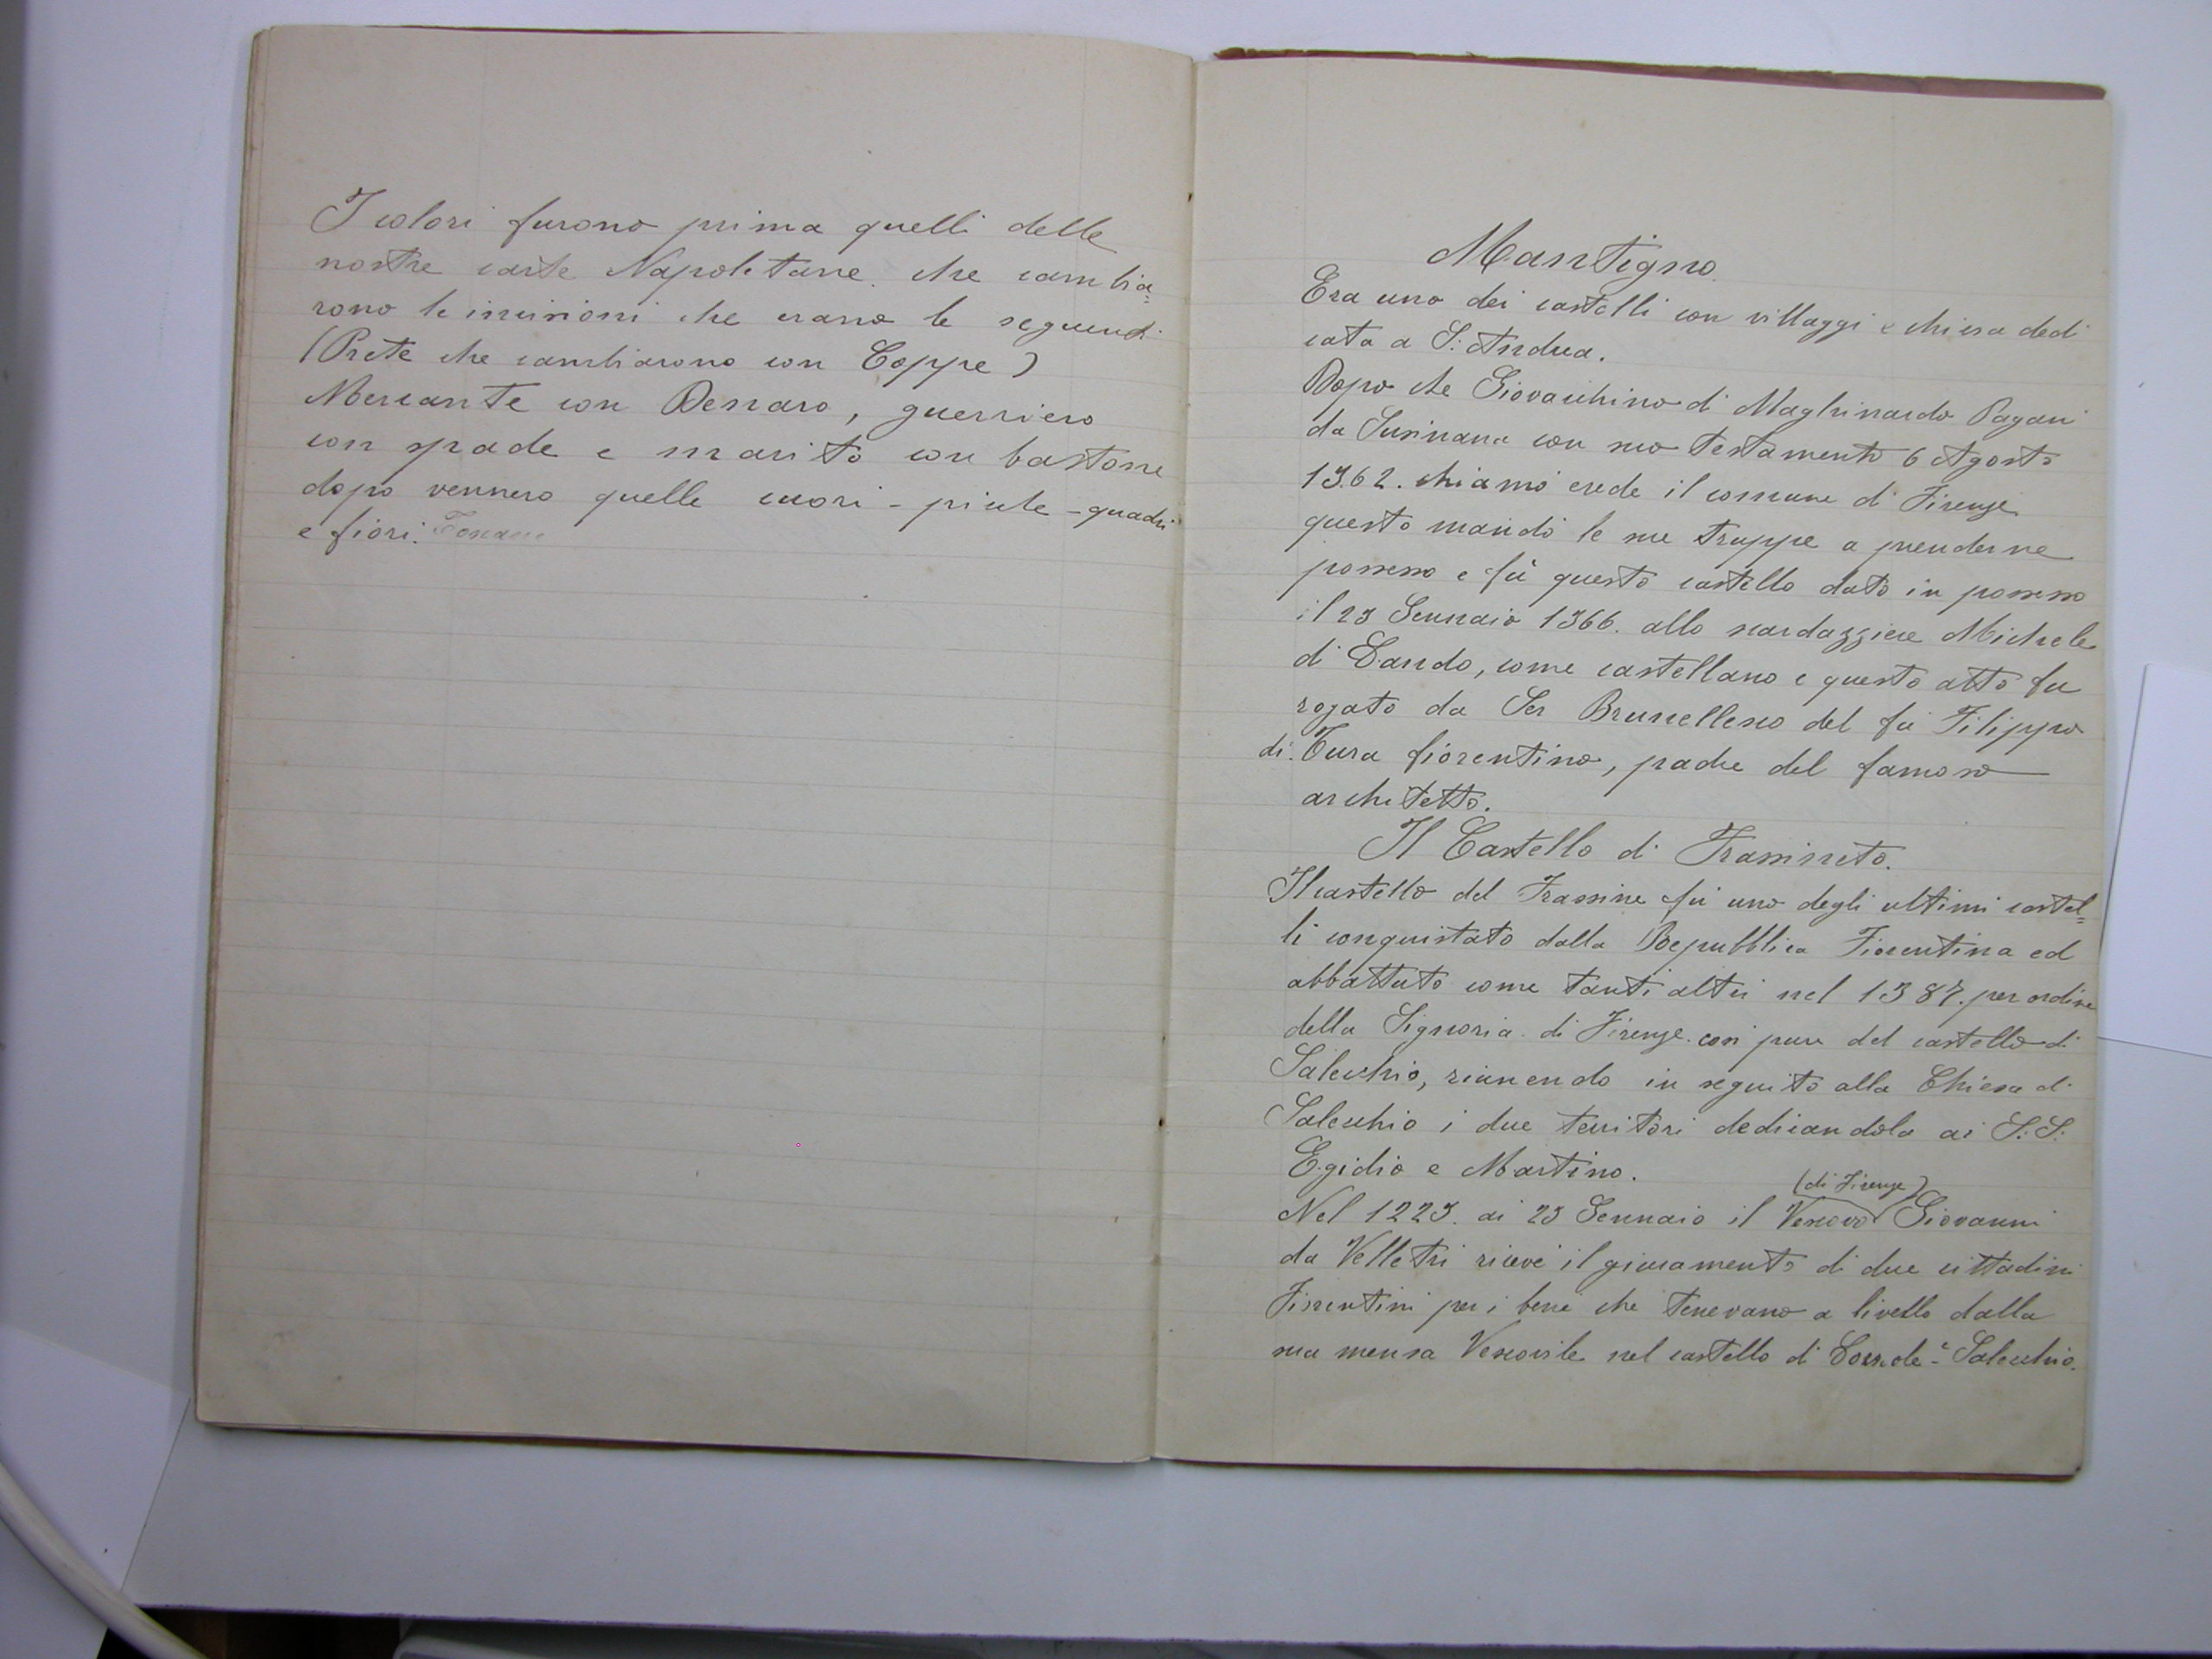 I colori furono prima quelli delle
nostre carte Napoletane. che cambia=
rono le incisioni che erano le seguenti
(Prete che cambiarono con Coppe)
Mercante con Denaro, guerriero
con spade e marito con bastone
dopo vennero quelle cuori - picche - quadri
e fiori. Toscane
Mantigno
Era uno dei castelli con villaggi e chiesa dedi
cata a S: Andrea.
Dopo che Giovacchino di Maghinardo Pagani
da Susinana con suo testamento 6 Agosto
1362. chiamò erede il comune di Firenze
questo mandò le sue truppe a prenderne
possesso e fù questo castello dato in possesso
il 23 Gennaio 1366. allo scardazziere Michele
di Lando, come castellano e questo atto fu
rogato da Ser Brunellesco del fu Filippo
di: Tura fiorentino, padre del famoso
architetto.
Il Castello di Frassineto.
Il castello del Frassine fù uno degli ultimi castel=
li conquistato dalla Repubblica Fiorentina ed
abbattuto come tanti altri nel 1387. per ordine
della Signoria di Firenze. così pure del castello di
Salecchio, riunendo in seguito alla Chiesa di
Salecchio i due territori dedicandola ai S: S:
Egidio e Martino.
(di Firenze)
Nel 1223. ai 23 Gennaio il Vescovo Giovanni
da Velletri ricevè il giuramento di due cittadini
Fiorentini per i beni che tenevano a livello dalla
sua mensa Vescovile nel castello di Salecchio.